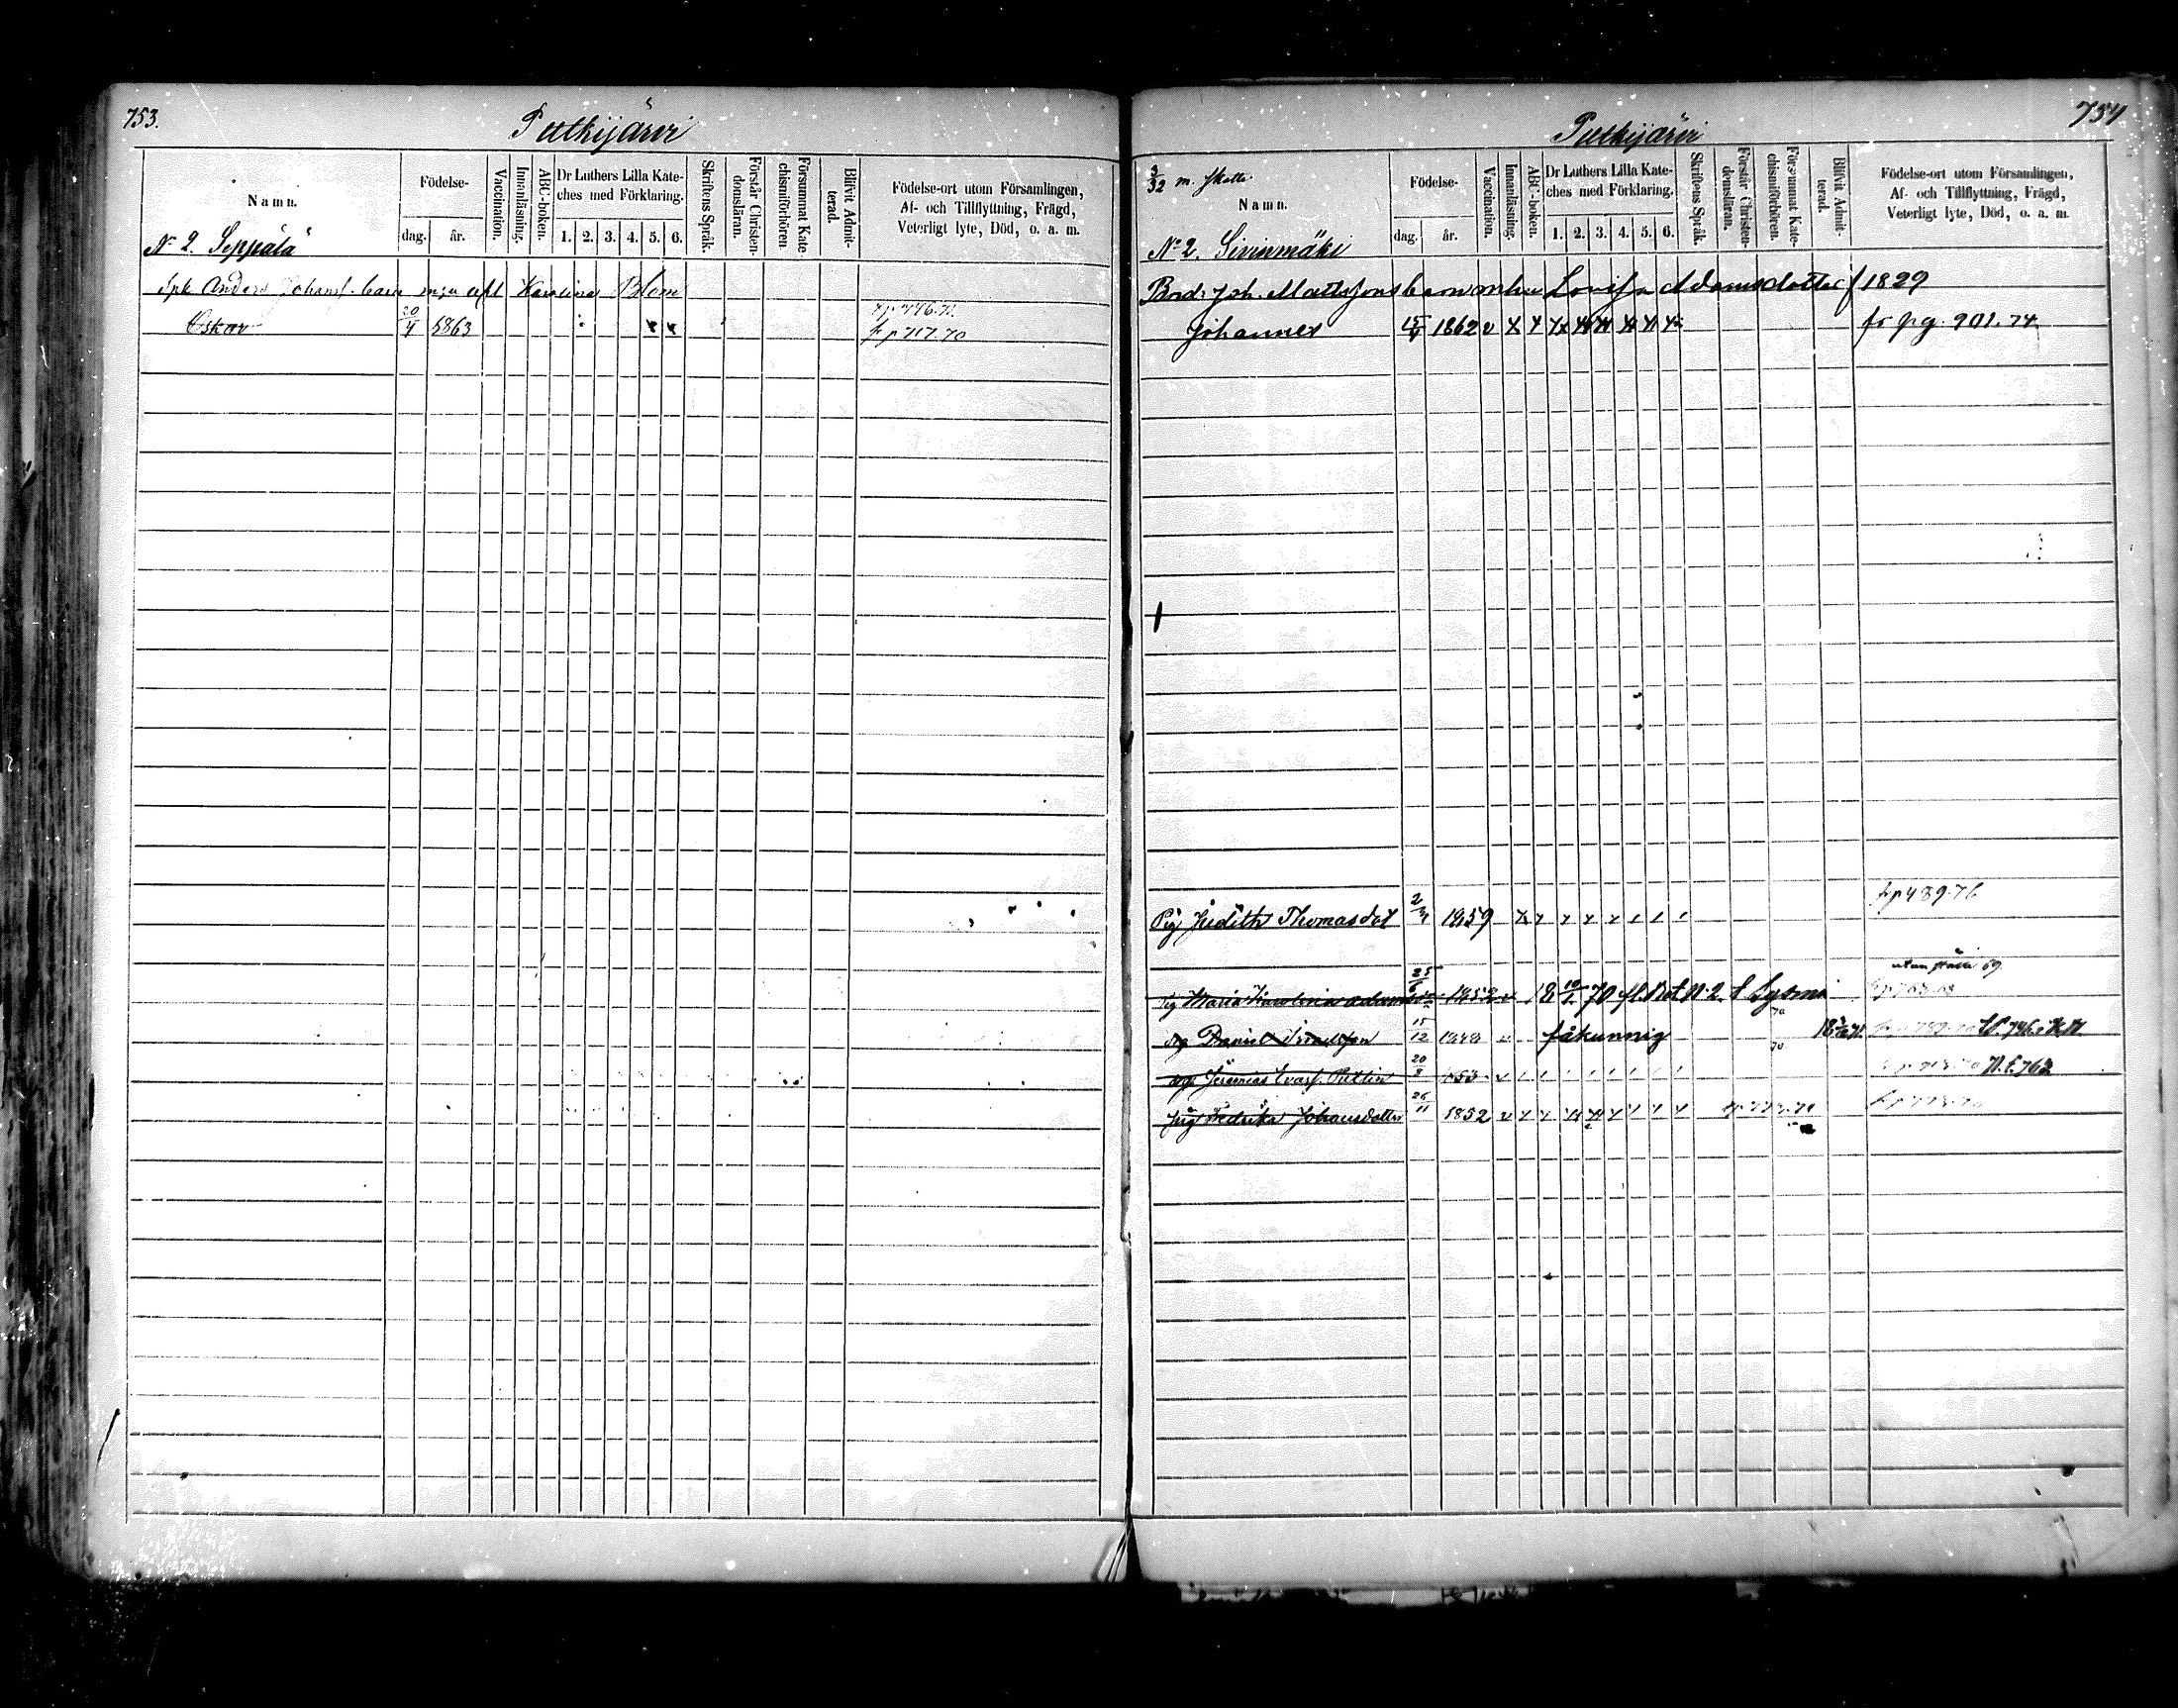 753.
Putkijärvi
Namn.
Födelse-
dag.
år.
Vaccination.
Innanläsning.
ABC-boken.
Dr Luthers Lilla Kate-
ches med Förklaring.
1. 2. 3. 4. 5. 6.
Skriftens Språk.
Förstår Christen-
domsläran.
Försummat Kate-
chismiförhören.
Blifvit Admit-
terad.
Födelse-ort utom Församlingen,
Af- och Tillflyttning, Frägd,
Veterligt lyte, Död, o. a. m.
No 2. Seppälä
Anders Johansf. barn Karolina Blom
Oskar 20/4 1863 fr p 717.70
754
Putkijärvi
3/32 m. skatt.
Namn.
Födelse-
dag.
år.
Vaccination.
Innanläsning.
ABC-boken.
Dr Luthers Lilla Kate-
ches med Förklaring.
1. 2. 3. 4. 5. 6.
Skriftens Språk.
Förstår Christen-
domsläran.
Försummat Kate-
chismiförhören.
Blifvit Admit-
terad.
Födelse-ort utom Församlingen,
Af- och Tillflyttning, Frägd,
Veterligt lyte, Död, o. a. m.
No 2. Sivinmäki
Bond. Joh. Mattssons barn m hu Lovisa Adamsdotter f 1829
Johannes 15/4 1862 v fr pg. 901. 74
fr p 489.76
Pig Judith Thomasdot 1859
utan ställe 69.
Pig Maria Karolina 25/6 1852 v 18 10/1 70 fl. Bet N. 2 t Sysmä
Dr Daniel 15/12 fåkunnig
Jeremias 20/8 N. f. 762
Pig Fredrika Johansdotter 26/11 1852 v